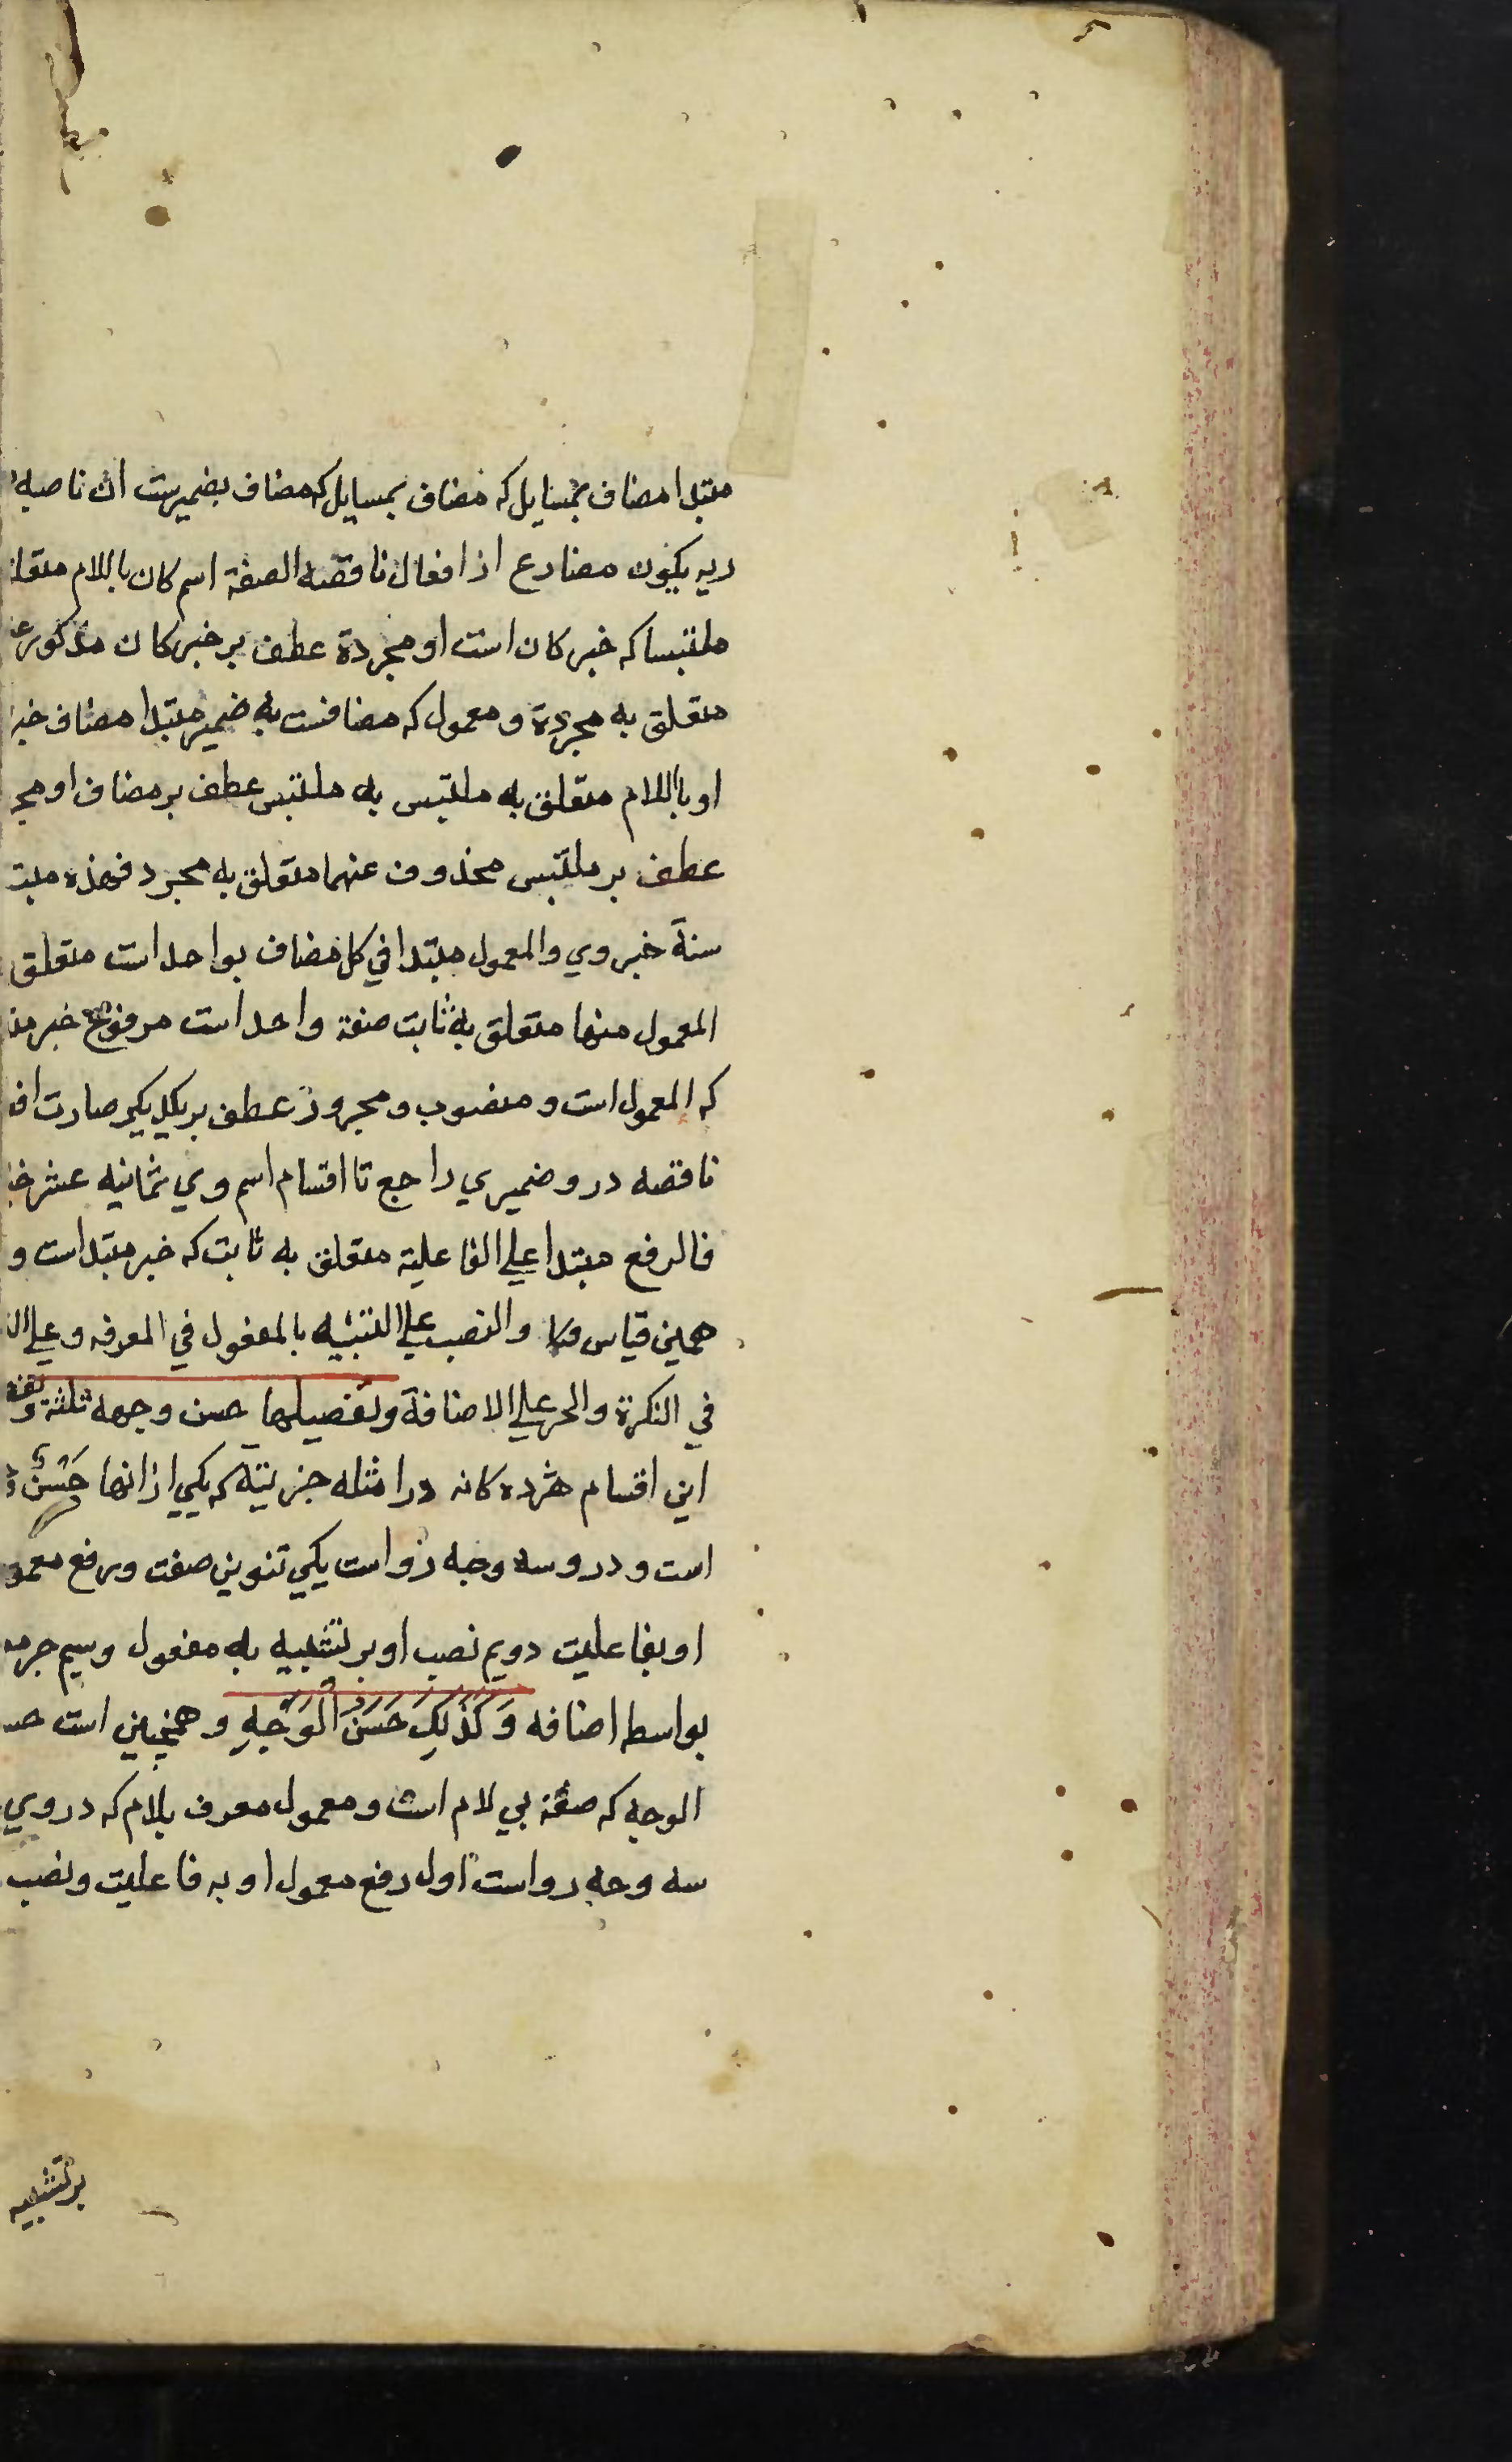 مبتدا مضاف بمسایل که مضاف بمسایل که مضاف بضمیرست ان ناصبه
ریه یکون مضارع از افعال ناقصه الصفة اسم کان باللام متعلق
ملتبسا که خبر کان است او مجردة عطف بر خبر کان مذکور
متعلق به مجردة و معمول که مضافست به ضمیر مبتدا مضاف خبر
او باللام متعلق به ملتبس به ملتبس عطف بر مضاف او مجر
عطف بر ملتبس محذوف عنهما متعلق به مجرد فهذه مبتد
ستة خبر وي والمعمول مبتدا في کل مضاف بواحد است متعلق
المعمول منها متعلق به ثابت صفة واحد است مرفوع خبر مبتـ
که المعمول است و منصوب و مجرور عطف بر یکدیکر صارت افعـ
ناقصه درو ضمیري راجع تا اقسام اسم وي ثمانیه عشر خبر
فالرفع مبتدا علي الفاعلیة متعلق به ثابت که خبر مبتداست و
همین قیاس والنصب علي التشبیه بالمفعول في المعرفه وعلي الـ
في النکرة والجر علي الاضافة وتفصیلها حسن وجهه ثلثة و
این اقسام هژده کانه در امثله جزییه که یکي ازانها حَسَنٌ
است و درو سه وجه رواست یکي تنوین صفت ورفع معمو
او بفاعلیت دویم نصب او بر تشبیه به مفعول وسیم جر
بواسطه اضافه وَکَذٰلِکَ حَسَنُ الْوَجْهِ و همچنین است حسـ
الوجه که صفة بي لام است و معمول معرف بلام که دروي
سه وجه رواست اول رفع معمول او به فاعلیت ونصب
بر تشبیه